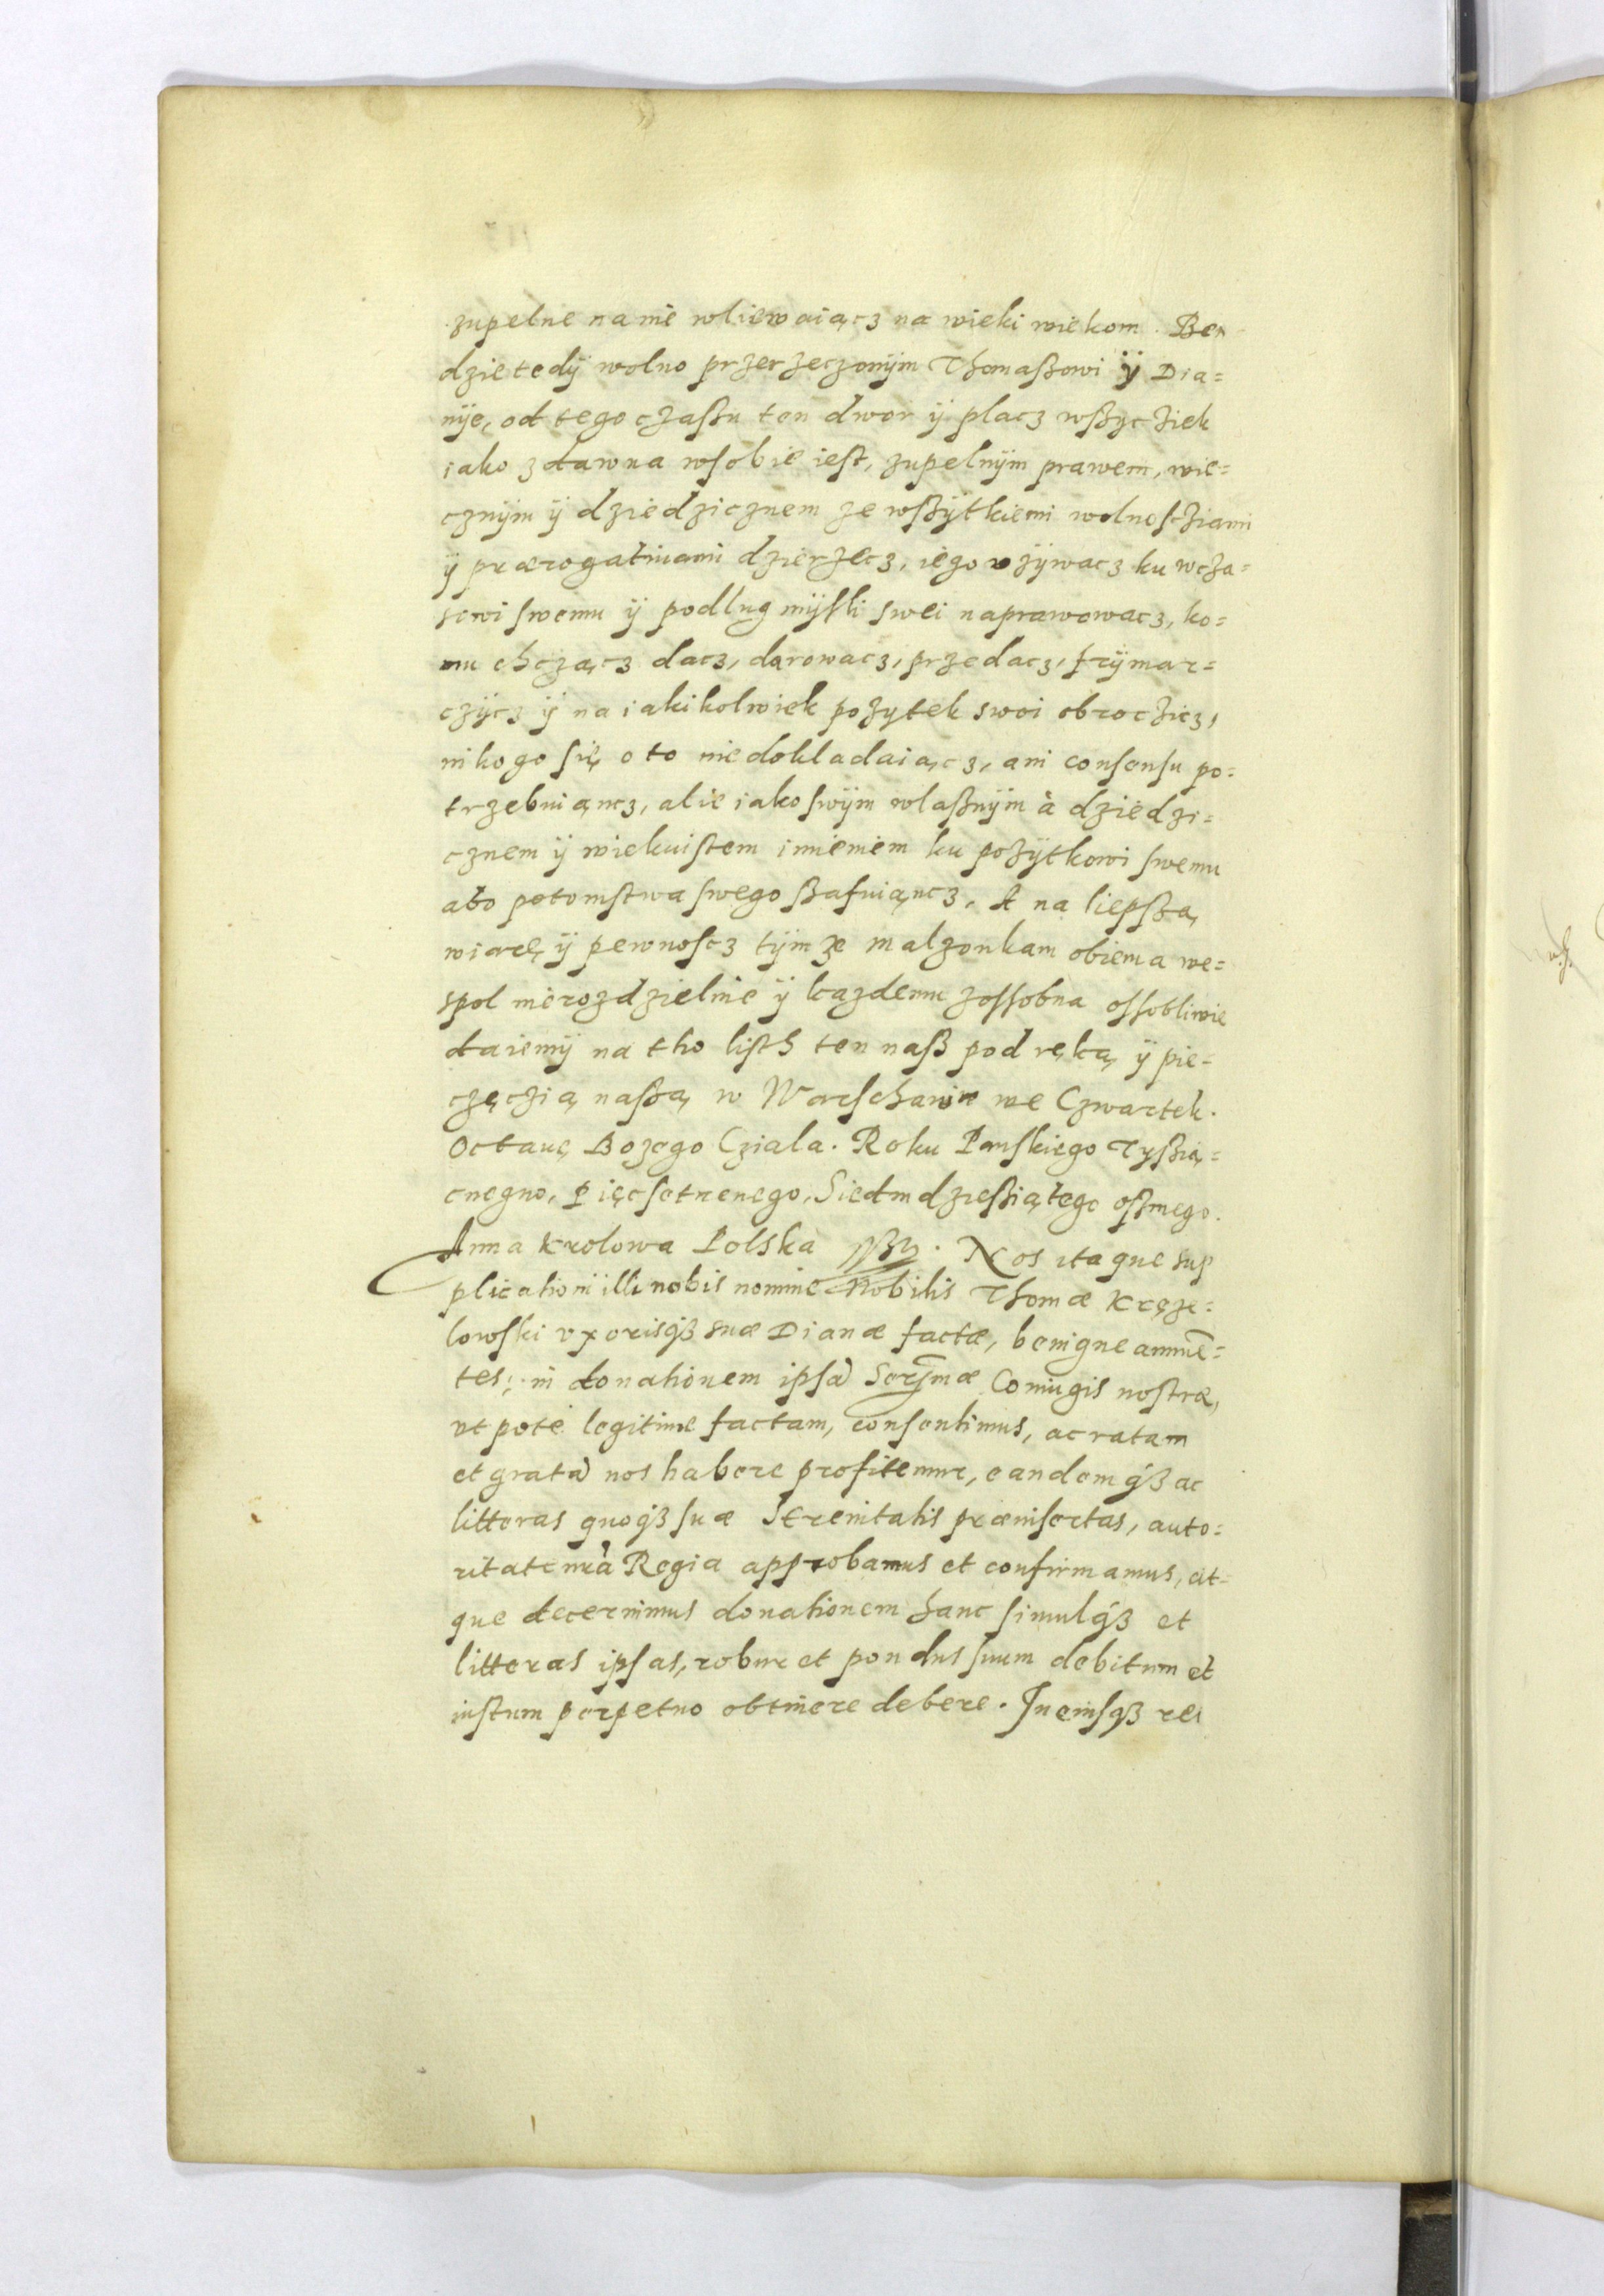 zupelne na nie wliewaiącz na wieki wiekom. Ben
dzie tedÿ wolno przerzeczonÿm Thomaßowi ÿ Dia=
nÿe, od tego czaßu ten dwor ÿ placz wßycziek
iako zdawna wsobie iest, zupelnÿm prawem, wie=
cznÿm ÿ dziedzicznem ze wßÿtkiemi wolnosciami
ÿ prærogatiuami dzierzecz, iego vzÿwacz ku wcza=
sowi swemu ÿ podlug mÿsli swei naprawowacz, ko=
mu chcząncz dacz, darowacz, przedacz, frÿmar=
czÿcz ÿ na iakikolwiek pozytek swoi obroczicz,
nikogo się o to niedokladaiącz, ani consensu po=
trzebuiąncz, alie iako swÿm wlaßnÿm à dziedzi=
cznem ÿ wiekuistem imieniem ku pozÿtkowi swemu
abo potomstwa swego ßafuiąncz. A na liepßą
wiarę ÿ pewnoscz tÿmze malzonkam obiema we=
spol nierozdzielnie ÿ kazdemu zossobna ossobliwie
daiemÿ na tho listh ten naß pod ręką ÿ pie=
częczią naßą w Warschawie we Czwartek.
Octauę Bozego Cziala. Roku Panskiego Tyßią=
cnegno, Pięcsetnenego, Siedmdzießiątego oßmego.
Anna Krolowa Polska ßßz. Nos itaque sup
plicationi illi nobis nomine Nobilis Thomæ Kręze=
lowski vxorisqȝ suæ Dianæ factæ, benigne annuē=
tes; in donationem ipsā Serm̄æ Coniugis nostræ,
vt pote legitime factam, consentimus, ac ratam
et gratā nos habere profitemur, eandemqȝ ac
litteras quoqȝ suæ Serenitatis præinsertas, auto=
ritate nr̄a Regia approbamus et confirmamus, at=
que decernimus donationem hanc simulqȝ et
litteras ipsas, robur et pondus suum debitum et
iustum perpetuo obtinere debere. In cuiusqȝ rei